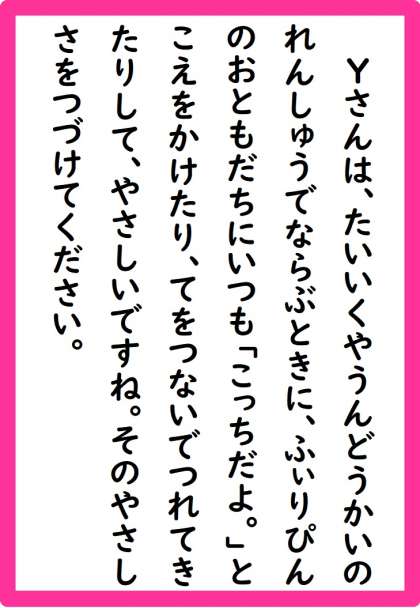 Yさんは、たいいくやうんどうかいの
れんしゅうでならぶときに、ふぃりぴん
のおともだちにいつも「こっちだよ。」と
こえをかけたり、てをつないでつれてき
たりして、やさしいですね。そのやさし
さをつづけてください。